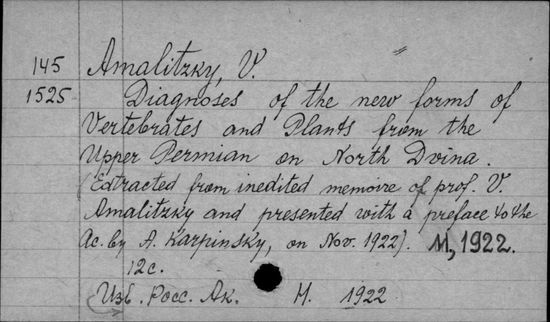 145 Amalitzky, V.
1525 Diagnoses of the new forms of
Vertebrates and Plants from the
Upper Permian on North Dvina.
(Extracted from inedited memoire of prof. V.
Amalitzky and presented with a preface to the
Ac. by A. Karpinsky, on Nov. 1922). М, 1922.
12 с.
Изв. Росс. Ак. Н. 1922